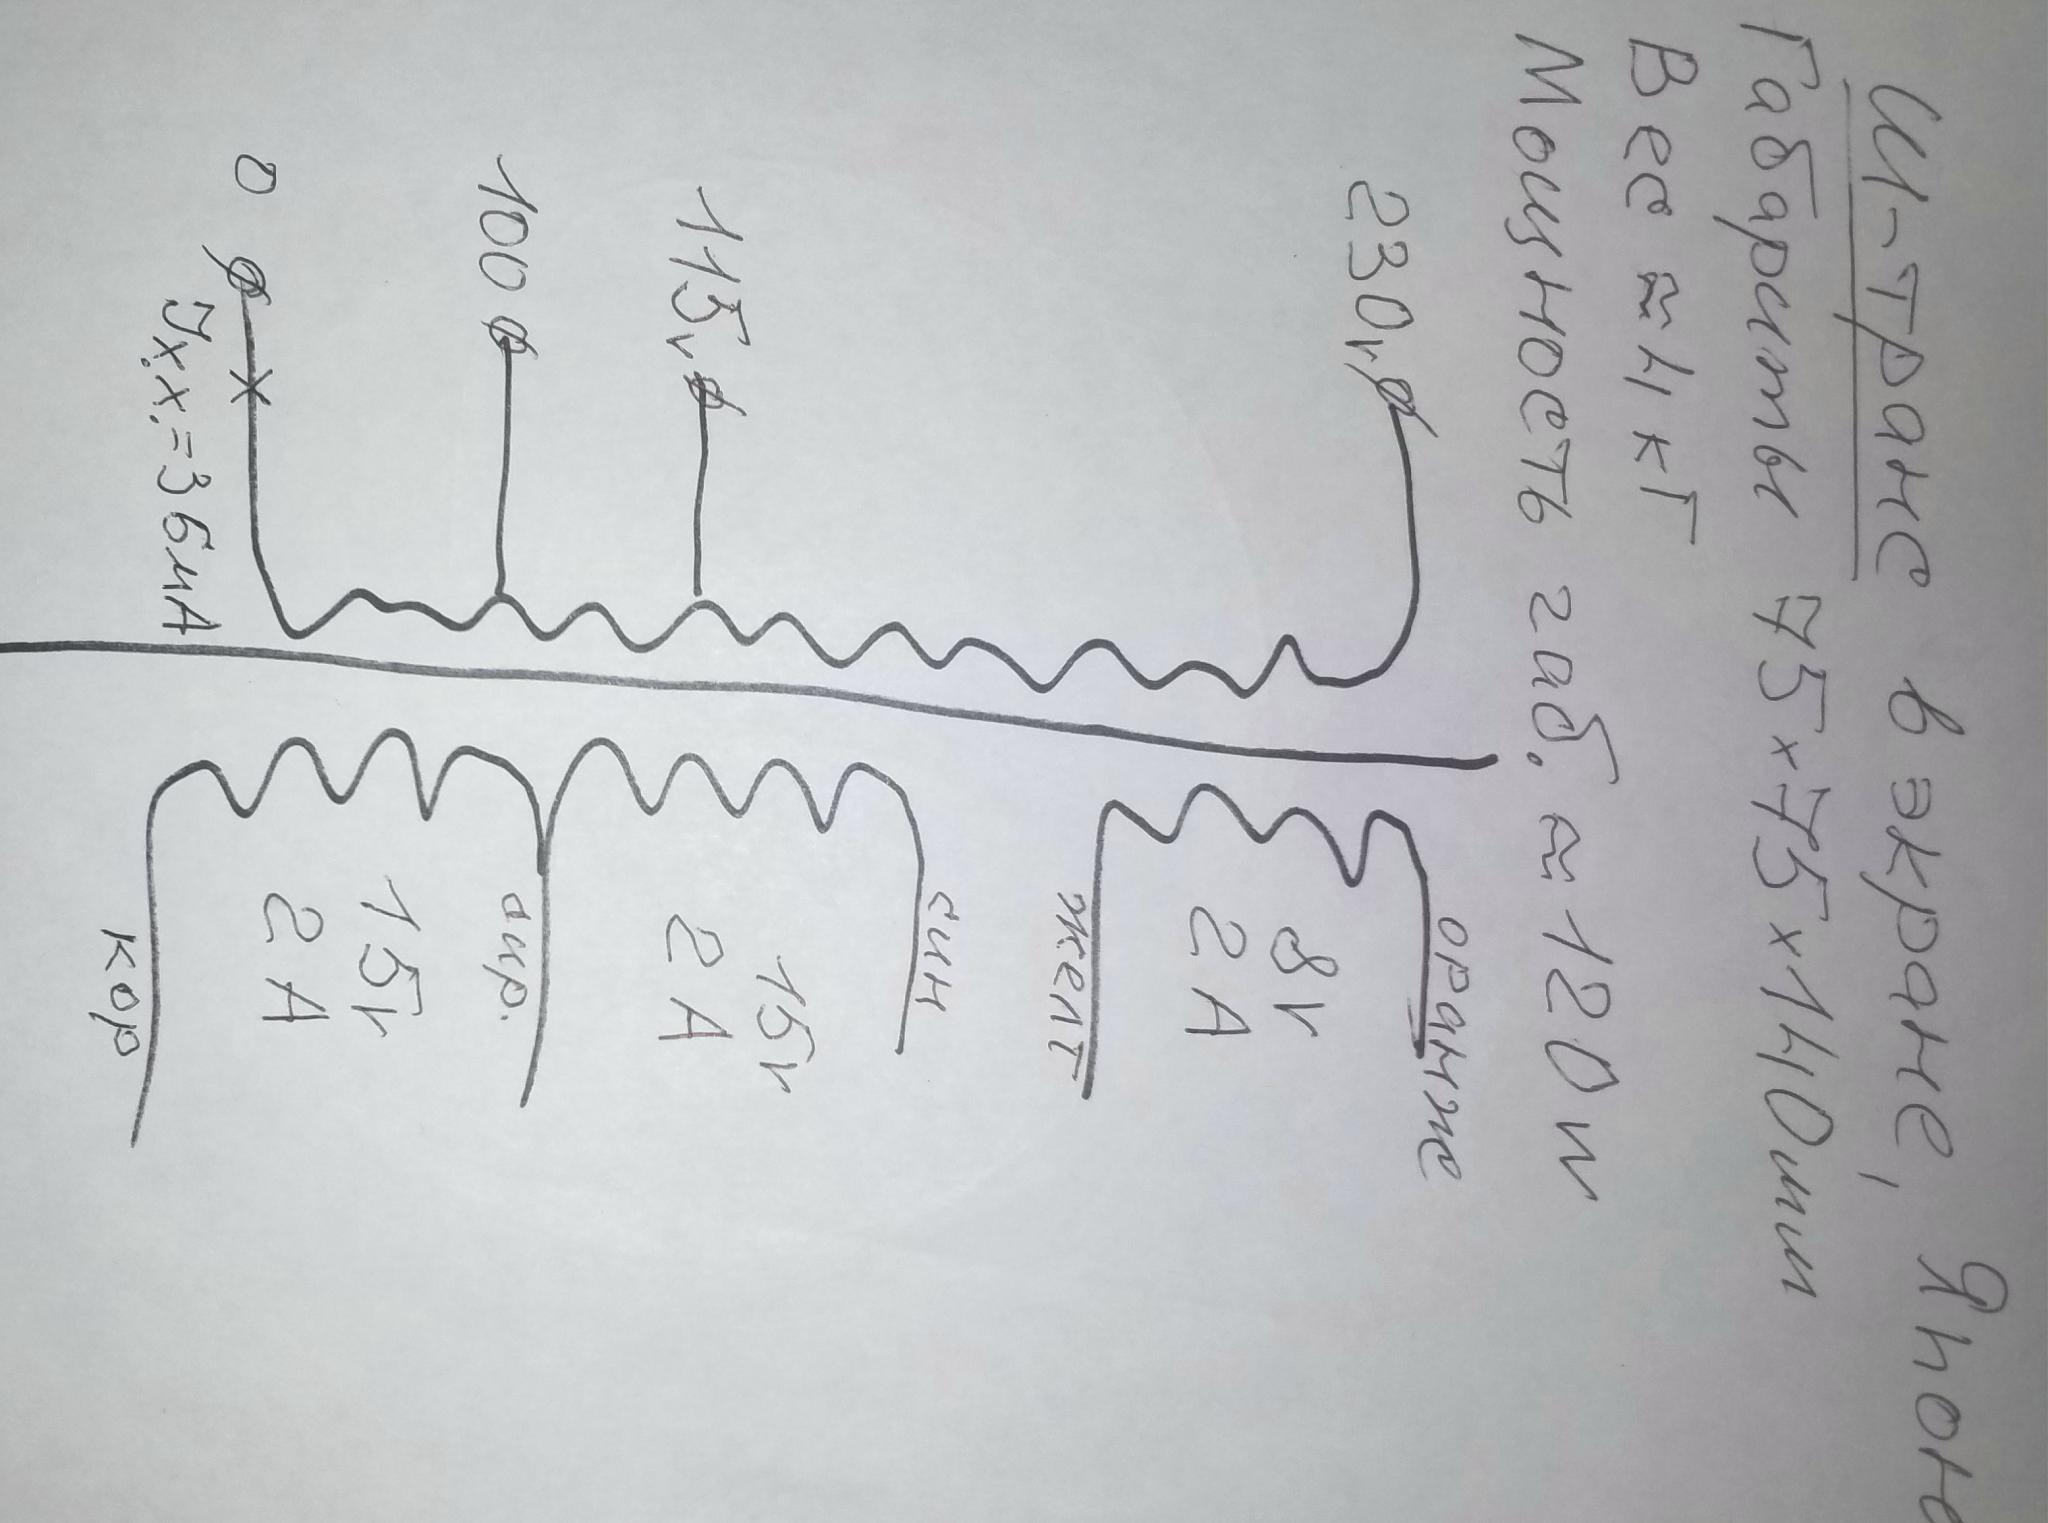 Ш-транс в экране,
Габариты 75x75x140мм
Вес ≈ 4 кг
Мощность габ. ≈ 120 w
230v
115v
100
0
Jх.х.=36мА
оранже
8v
2A
желт
син
15v
2A
сир.
15v
2A
кор